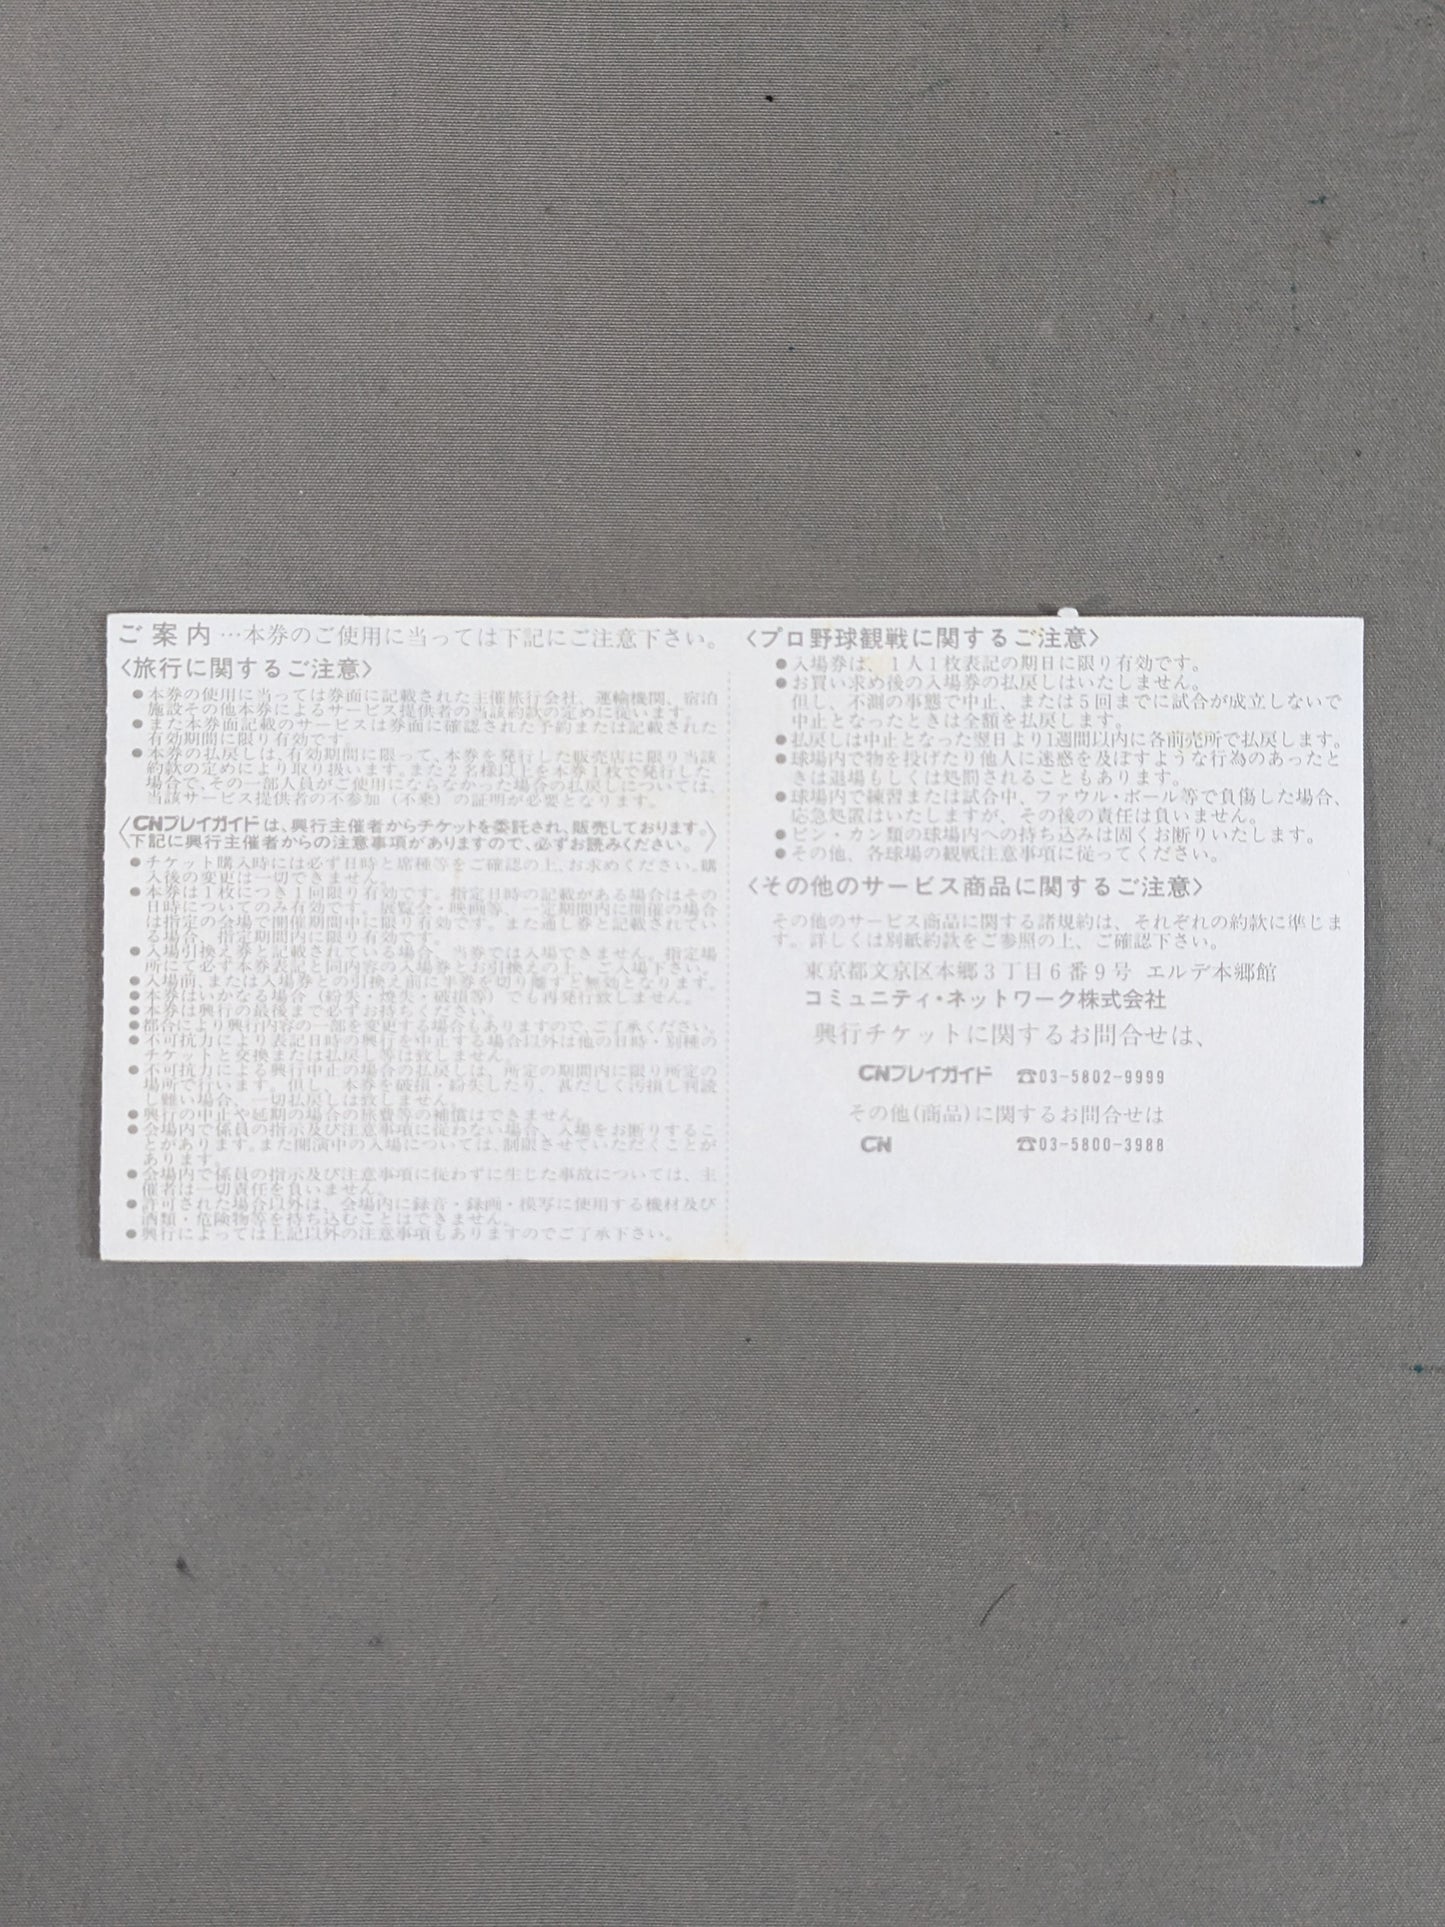 ご案内…本券のご使用に当っては下記にご注意下さい。
〈旅行に関するご注意〉
●本券の使用に当っては券面に記載された主催旅行会社、運輸機関、宿泊
施設その他本券によるサービス提供者の当該約款の定めに従います。
●また本券面記載のサービスは券面に確認された予約または記載された
有効期間に限り有効です。
●本券の払戻しは、有効期間に限って、本券を発行した販売店に限り当該
約款の定めにより取り扱います。また2名様以上を本券1枚で発行した
場合で、その一部人員がご使用にならなかった場合の払戻しについては、
当該サービス提供者の不参加(不乗)の証明が必要となります。
〈CNプレイガイドは、興行主催者からチケットを委託され、販売しております。
下記に興行主催者からの注意事項がありますので、必ずお読みください。〉
●チケット購入時には必ず日時と席種等をご確認の上、お求めください。購
入後の変更は一切できません。
●本券は1枚につき1回限り有効です。指定日時の記載がある場合はその
日時についてのみ有効です。展覧会・映画等、一定期間内に開催の場合
は指定の会場で開催期間中に限り有効です。また通し券と記載されてい
る場合、指定期間内に限り有効です。
●入場引換え券と記載されている場合、当券では入場できません。指定場
所にて必ず本券表記と同内容の入場券とお引換えの上、ご入場下さい。
●入場前、または入場券との引換え前に半券を切り離すと無効となります。
●本券はいかなる場合(紛失・焼失・破損等)でも再発行致しません。
●本券は興行の最後まで必ずお持ちください。
●都合により興行内容の一部を変更する場合もありますので、ご了承ください。
●不可抗力により表記日時の興行を中止する場合以外は他の日時・別種の
チケットと交換または払戻し等は致しません。
●不可抗力による興行中止の場合の払戻しは、所定の期間内に限り所定の
場所で行います。但し、本券を破損・紛失したり、甚だしく汚損し判読
し難い場合、一切払戻しは致しません。
●興行の中止や延期の場合の旅費等の補償はできません。
●会場内で係員の指示及び注意事項に従わない場合、入場をお断りするこ
とがあります。また開演中の入場については、制限させていただくことが
あります。
●会場内で係員の指示及び注意事項に従わずに生じた事故については、主
催者は一切責任を負いません。
●許可された場合以外は、会場内に録音・録画・模写に使用する機材及び
酒類・危険物等を持ち込むことはできません。
●興行によっては上記以外の注意事項もありますのでご了承下さい。
〈プロ野球観戦に関するご注意〉
●入場券は、1人1枚表記の期日に限り有効です。
●お買い求め後の入場券の払戻しはいたしません。
但し、不測の事態で中止、または5回までに試合が成立しないで
中止となったときは全額を払戻します。
●払戻しは中止となった翌日より1週間以内に各前売所で払戻します。
●球場内で物を投げたり他人に迷惑を及ぼすような行為のあったと
きは退場もしくは処罰されることもあります。
●球場内で練習または試合中、ファウル・ボール等で負傷した場合、
応急処置はいたしますが、その後の責任は負いません。
●ビン・カン類の球場内への持ち込みは固くお断りいたします。
●その他、各球場の観戦注意事項に従ってください。
〈その他のサービス商品に関するご注意〉
その他のサービス商品に関する諸規約は、それぞれの約款に準じま
す。詳しくは別紙約款をご参照の上、ご確認下さい。
東京都文京区本郷3丁目6番9号 エルデ本郷館
コミュニティ・ネットワーク株式会社
興行チケットに関するお問合せは、
CNプレイガイド ☎03-5802-9999
その他(商品)に関するお問合せは
CN ☎03-5800-3988